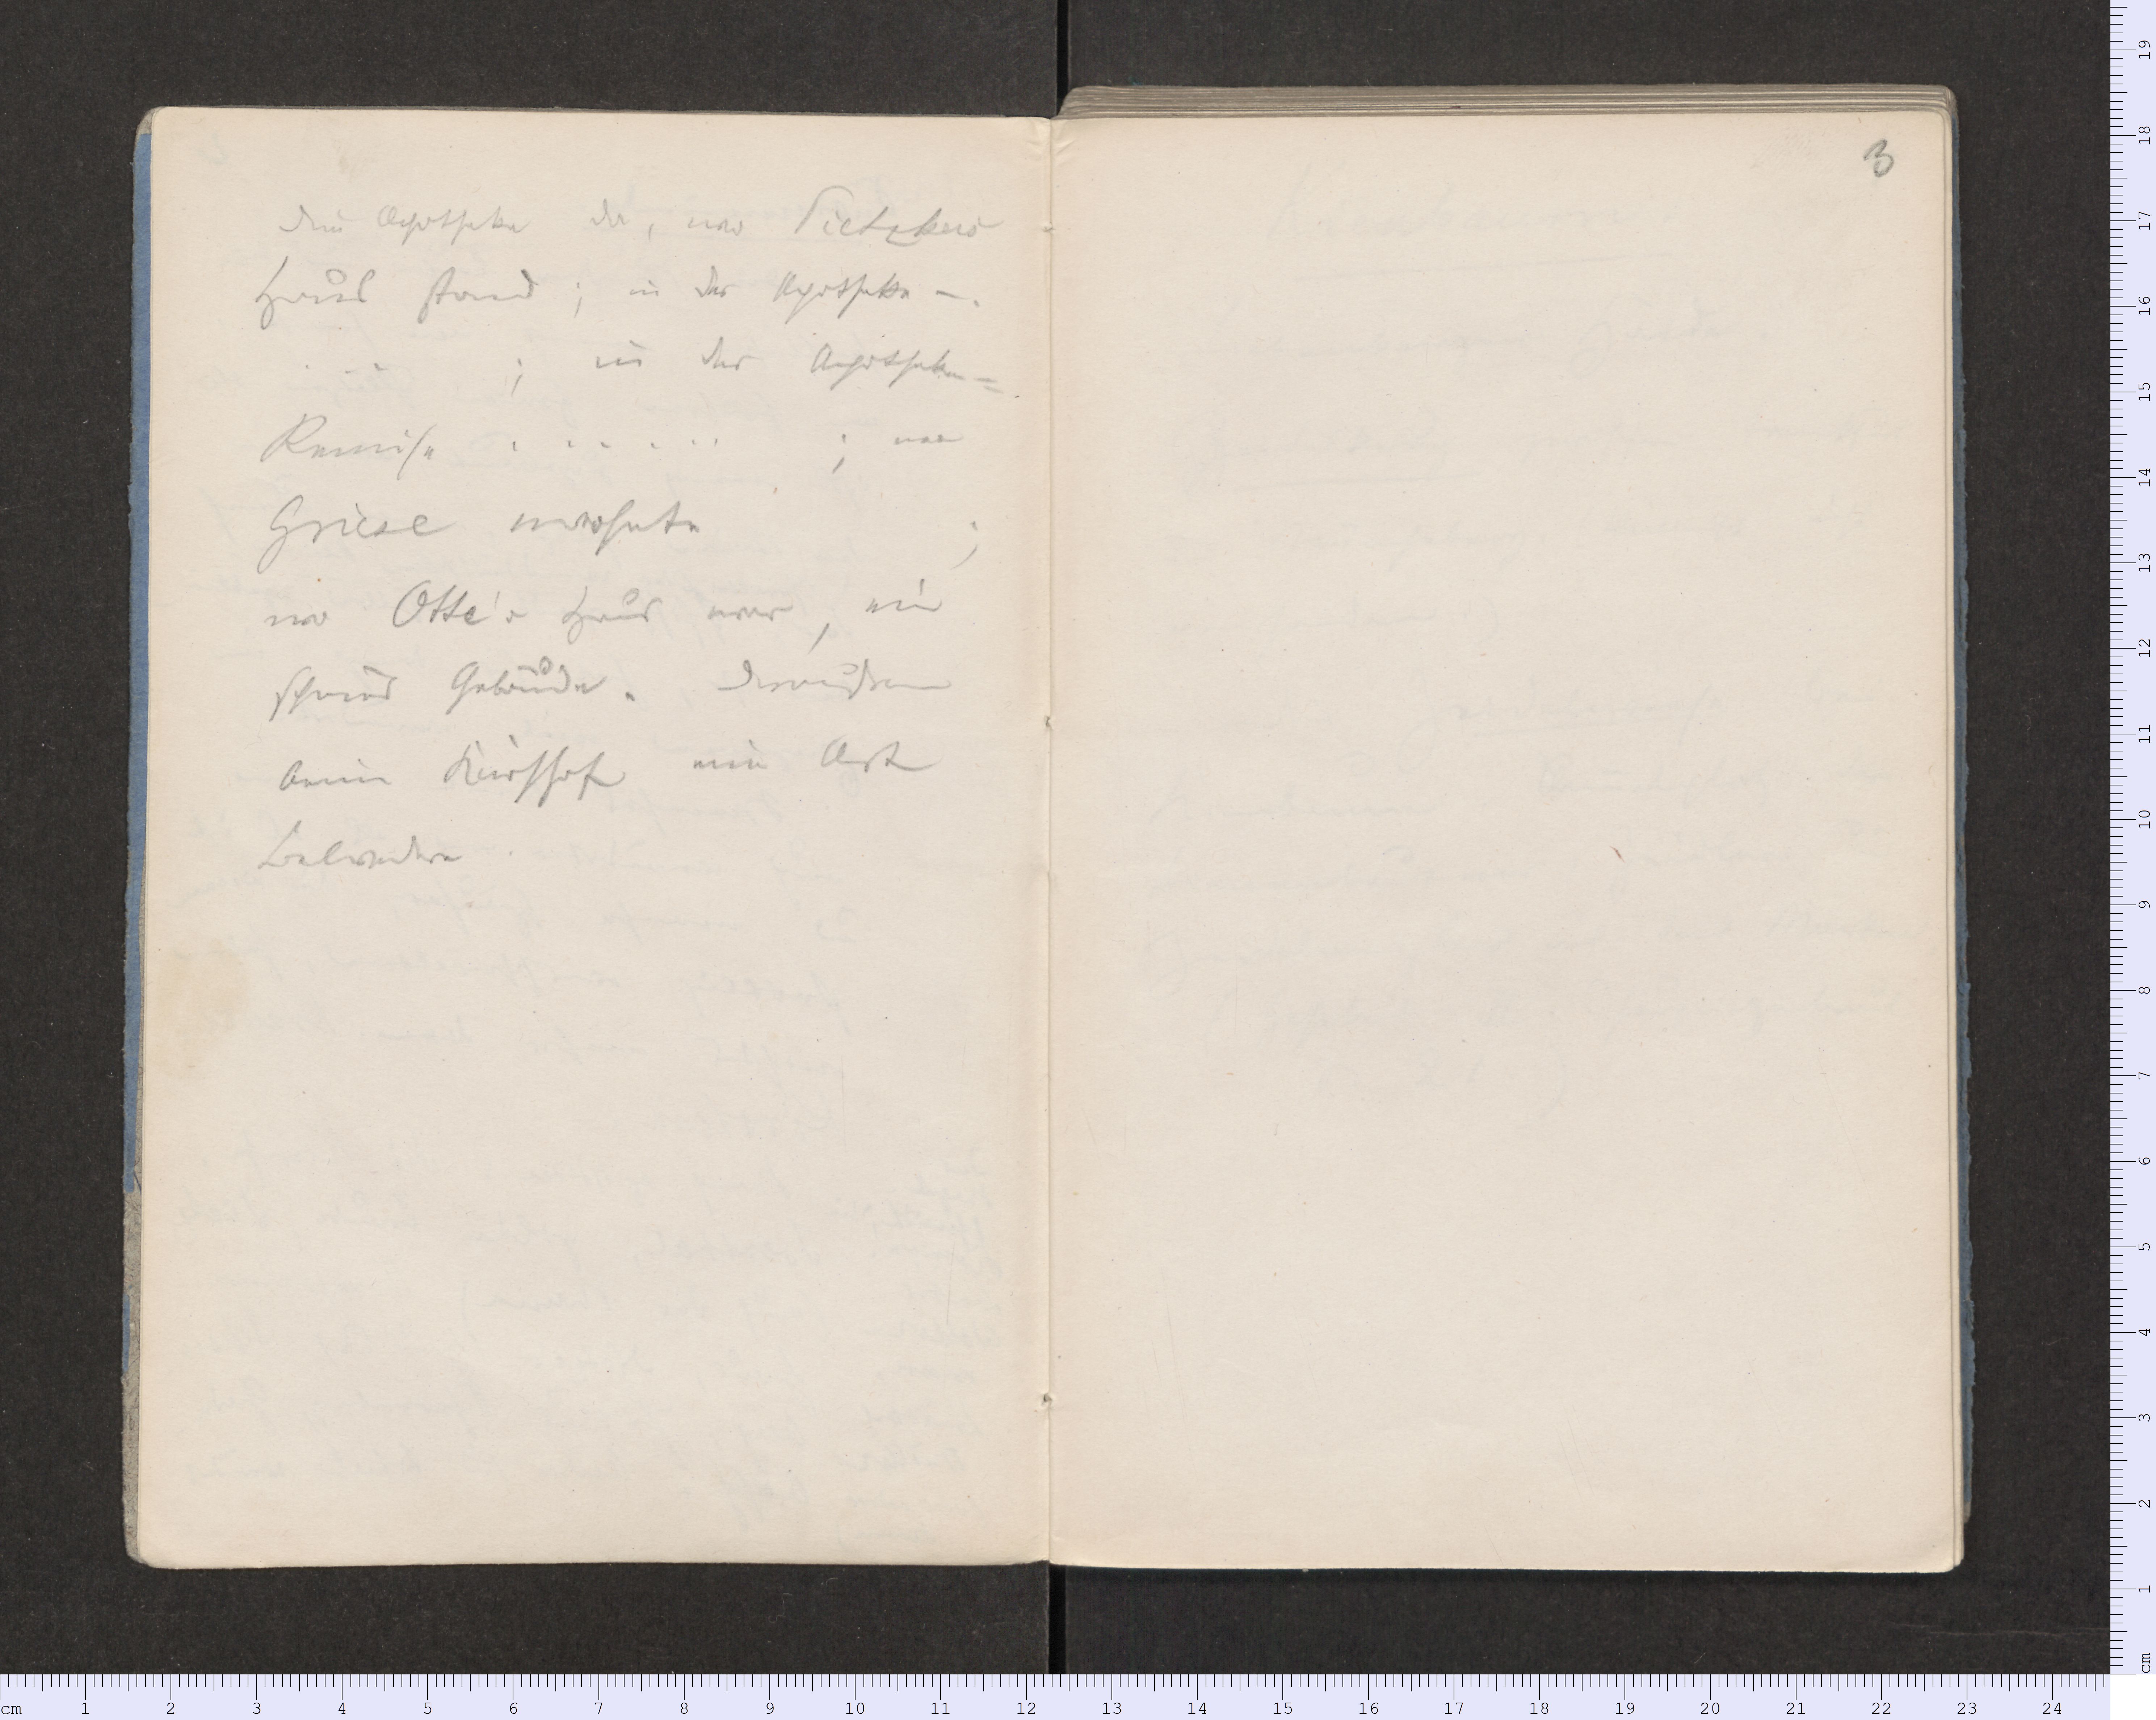 Die Apotheke da, wo Pietzkers
Haus stand; in der Apotheke –.
. . . ; in der Apotheken=
Remise . . . . . . ; wo
Griese wohnte ;
wo Otte's Haus war, ein
schönes Gebäude. Draußen
beim Kirchhof eine Art
Belvedere.
3